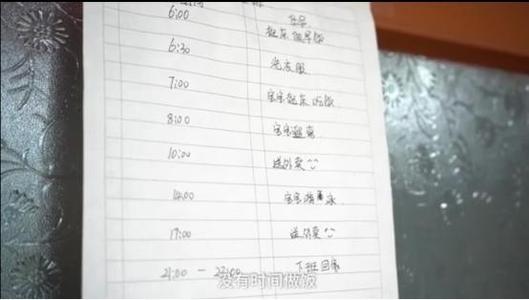 时间 任务
6:00 起床做早饭
6:30 洗衣服
7:00 宝宝起床吃饭
8:00 宝宝
10:00 送外卖
14:00 宝宝游泳
17:00 送外卖
21:00 - 22:00 下班回家
没有时间做饭